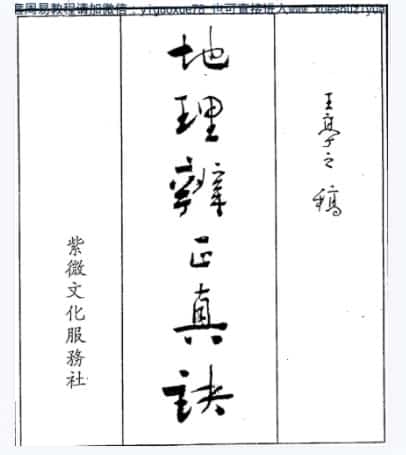 周易教程请加微信：yiguoxue78 也可直接进入www.xueshuziyua
王亭之 稿
地理辨正真訣
紫微文化服務社